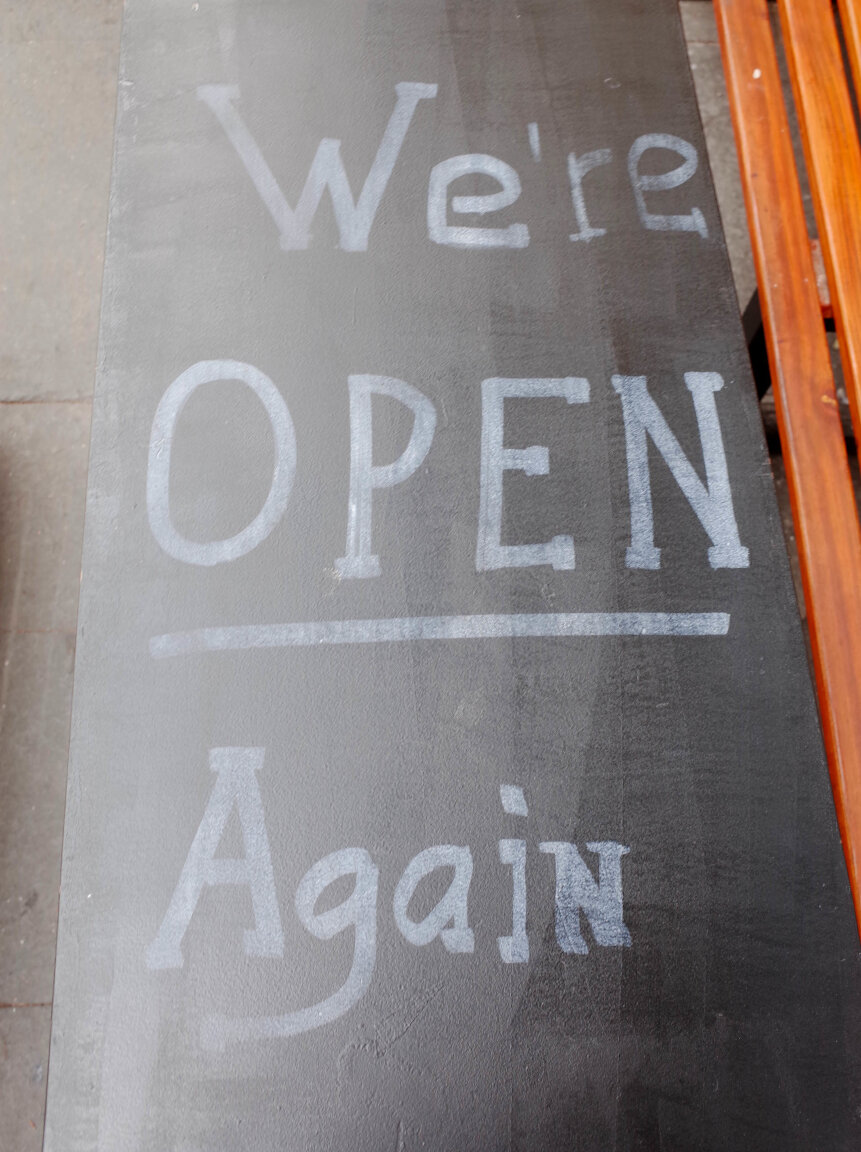 We're
OPEN
Again